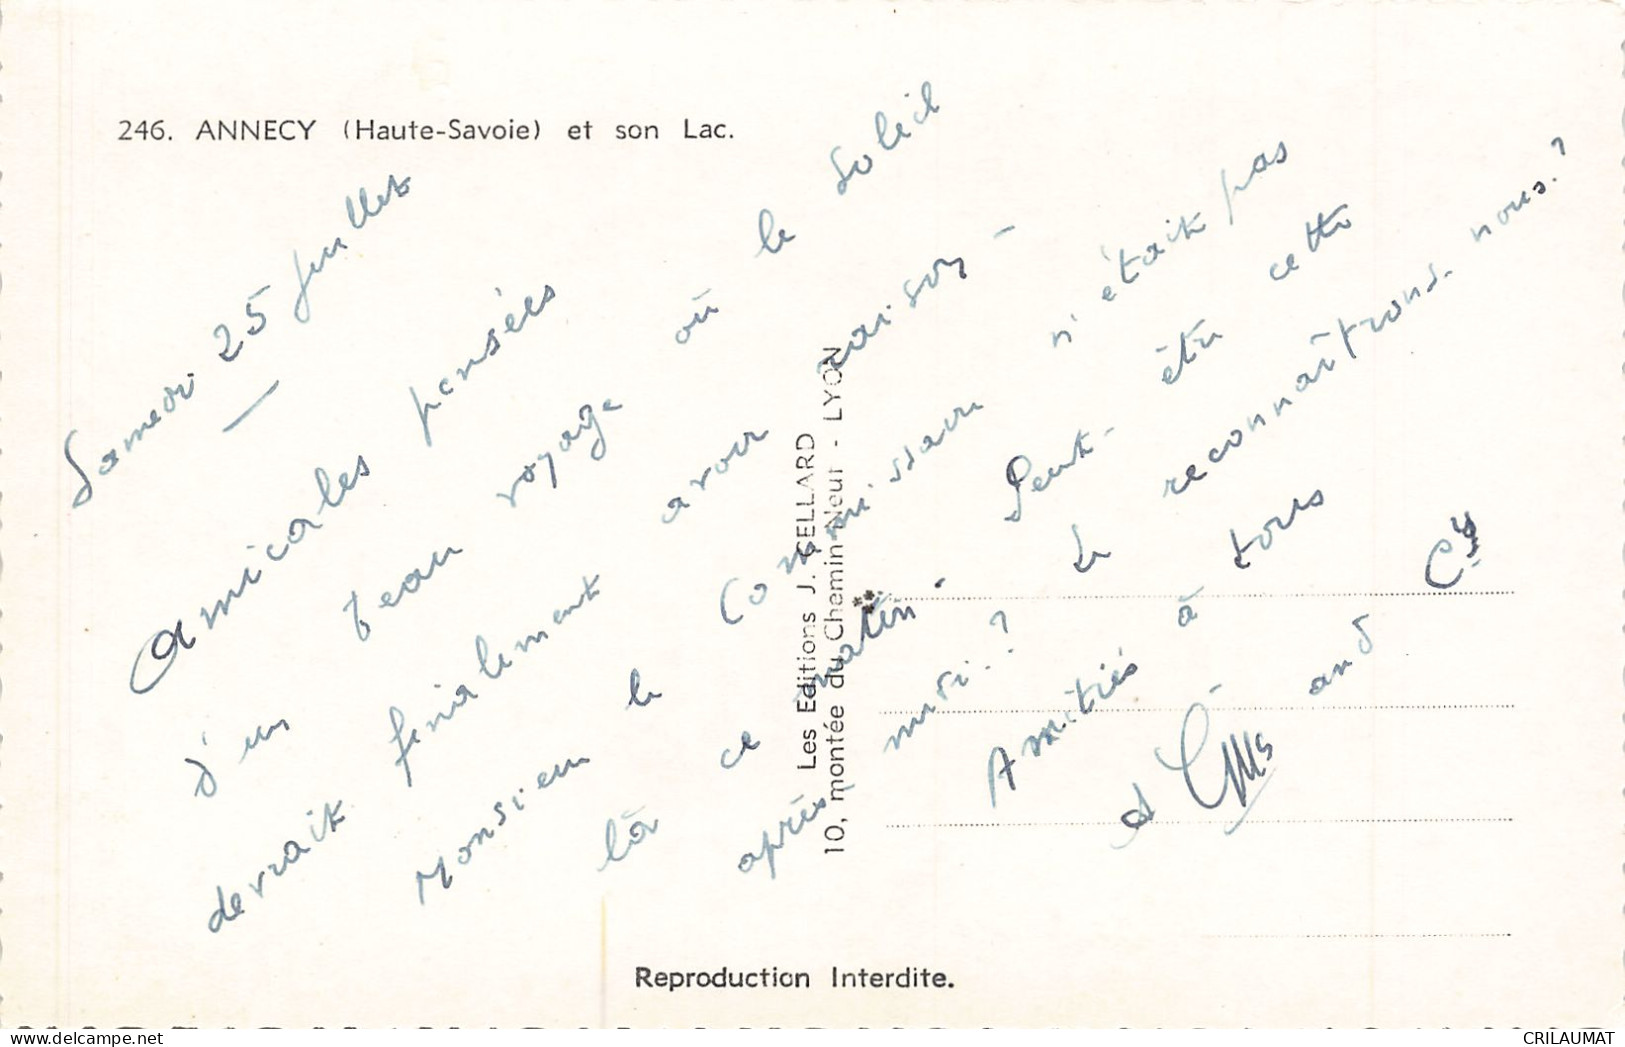 246. ANNECY (Haute-Savoie) et son Lac.
Samedi 25 juillet
Amicales pensées
d'un beau voyage où le soleil
devrait finalement avoir raison -
Monsieur le Commissaire n'était pas
là ce matin. Peut-être cette
après midi.? Le reconnaîtrons-nous.?
Amitiés à tous
and Cy
Les Editions J. CELLARD
10, montée du Chemin Neuf - LYON
Reproduction Interdite.
CRILAUMAT